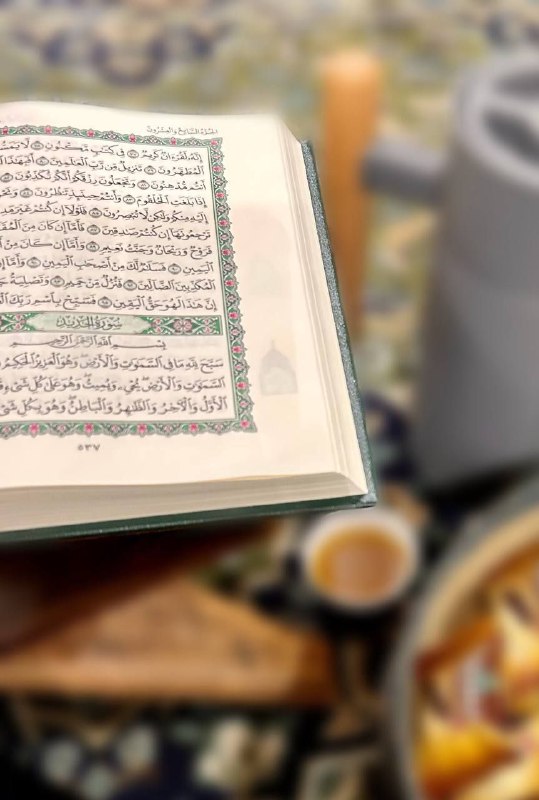 الجزء السابع والعشرون
إِنَّهُ لَقُرْءَانٌ كَرِيمٌ ٧٧ فِى كِتَٰبٍ مَّكْنُونٍ ٧٨ لَّا
ٱلْمُطَهَّرُونَ ٧٩ تَنزِيلٌ مِّن رَّبِّ ٱلْعَٰلَمِينَ ٨٠ أَفَبِهَٰذَا
أَنتُم مُّدْهِنُونَ ٨١ وَتَجْعَلُونَ رِزْقَكُمْ أَنَّكُمْ تُكَذِّبُونَ
إِذَا بَلَغَتِ ٱلْحُلْقُومَ ٨٣ وَأَنتُمْ حِينَئِذٍ تَنظُرُونَ ٨٤
إِلَيْهِ مِنكُمْ وَلَٰكِن لَّا تُبْصِرُونَ ٨٥ فَلَوْلَآ إِن كُنتُمْ غَيْرَ
تَرْجِعُونَهَآ إِن كُنتُمْ صَٰدِقِينَ ٨٧ فَأَمَّآ إِن كَانَ مِنَ
فَرَوْحٌ وَرَيْحَانٌ وَجَنَّتُ نَعِيمٍ ٨٩ وَأَمَّآ إِن كَانَ مِنْ
ٱلْيَمِينِ ٩٠ فَسَلَٰمٌ لَّكَ مِنْ أَصْحَٰبِ ٱلْيَمِينِ ٩١ وَأَمَّآ
ٱلْمُكَذِّبِينَ ٱلضَّآلِّينَ ٩٢ فَنُزُلٌ مِّنْ حَمِيمٍ ٩٣ وَتَصْلِيَةُ
إِنَّ هَٰذَا لَهُوَ حَقُّ ٱلْيَقِينِ ٩٥ فَسَبِّحْ بِٱسْمِ رَبِّكَ
سورة الحديد
بِسْمِ ٱللَّهِ ٱلرَّحْمَٰنِ ٱلرَّحِيمِ
سَبَّحَ لِلَّهِ مَا فِى ٱلسَّمَٰوَٰتِ وَٱلْأَرْضِ وَهُوَ ٱلْعَزِيزُ ٱلْحَكِيمُ
ٱلسَّمَٰوَٰتِ وَٱلْأَرْضِ يُحْىِۦ وَيُمِيتُ وَهُوَ عَلَىٰ كُلِّ شَىْءٍ
ٱلْأَوَّلُ وَٱلْءَاخِرُ وَٱلظَّٰهِرُ وَٱلْبَاطِنُ وَهُوَ بِكُلِّ شَىْءٍ
٥٣٧